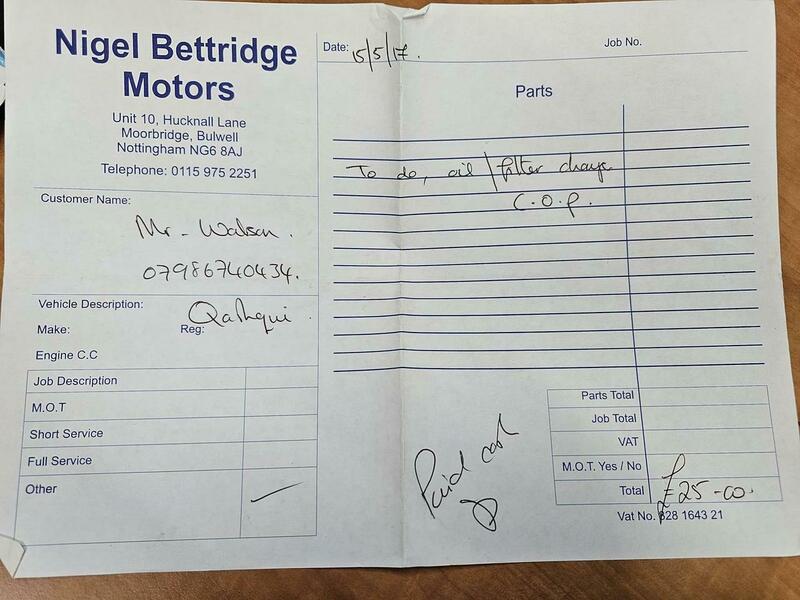 Nigel Bettridge
Motors
Unit 10, Hucknall Lane
Moorbridge, Bulwell
Nottingham NG6 8AJ
Telephone: 0115 975 2251
Customer Name:
Mr - Watson.
07986740434.
Vehicle Description: Qashqui.
Make: Reg:
Engine C.C
Job Description
M.O.T
Short Service
Full Service
Other
Date: 15/5/17. Job No.
Parts
To do, oil / filter change
C.O.P.
Paid cash
Parts Total
Job Total
VAT
M.O.T. Yes / No
Total £25-00.
Vat No. 828 1643 21